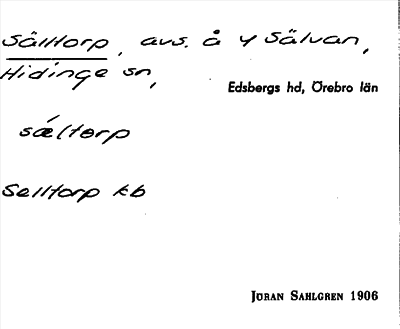 Sälltorp, avs. å y Sälvan,
Hidinge sn,
Edsbergs hd, Örebro län
sǽltorp
Selltorp kb
Jöran Sahlgren 1906